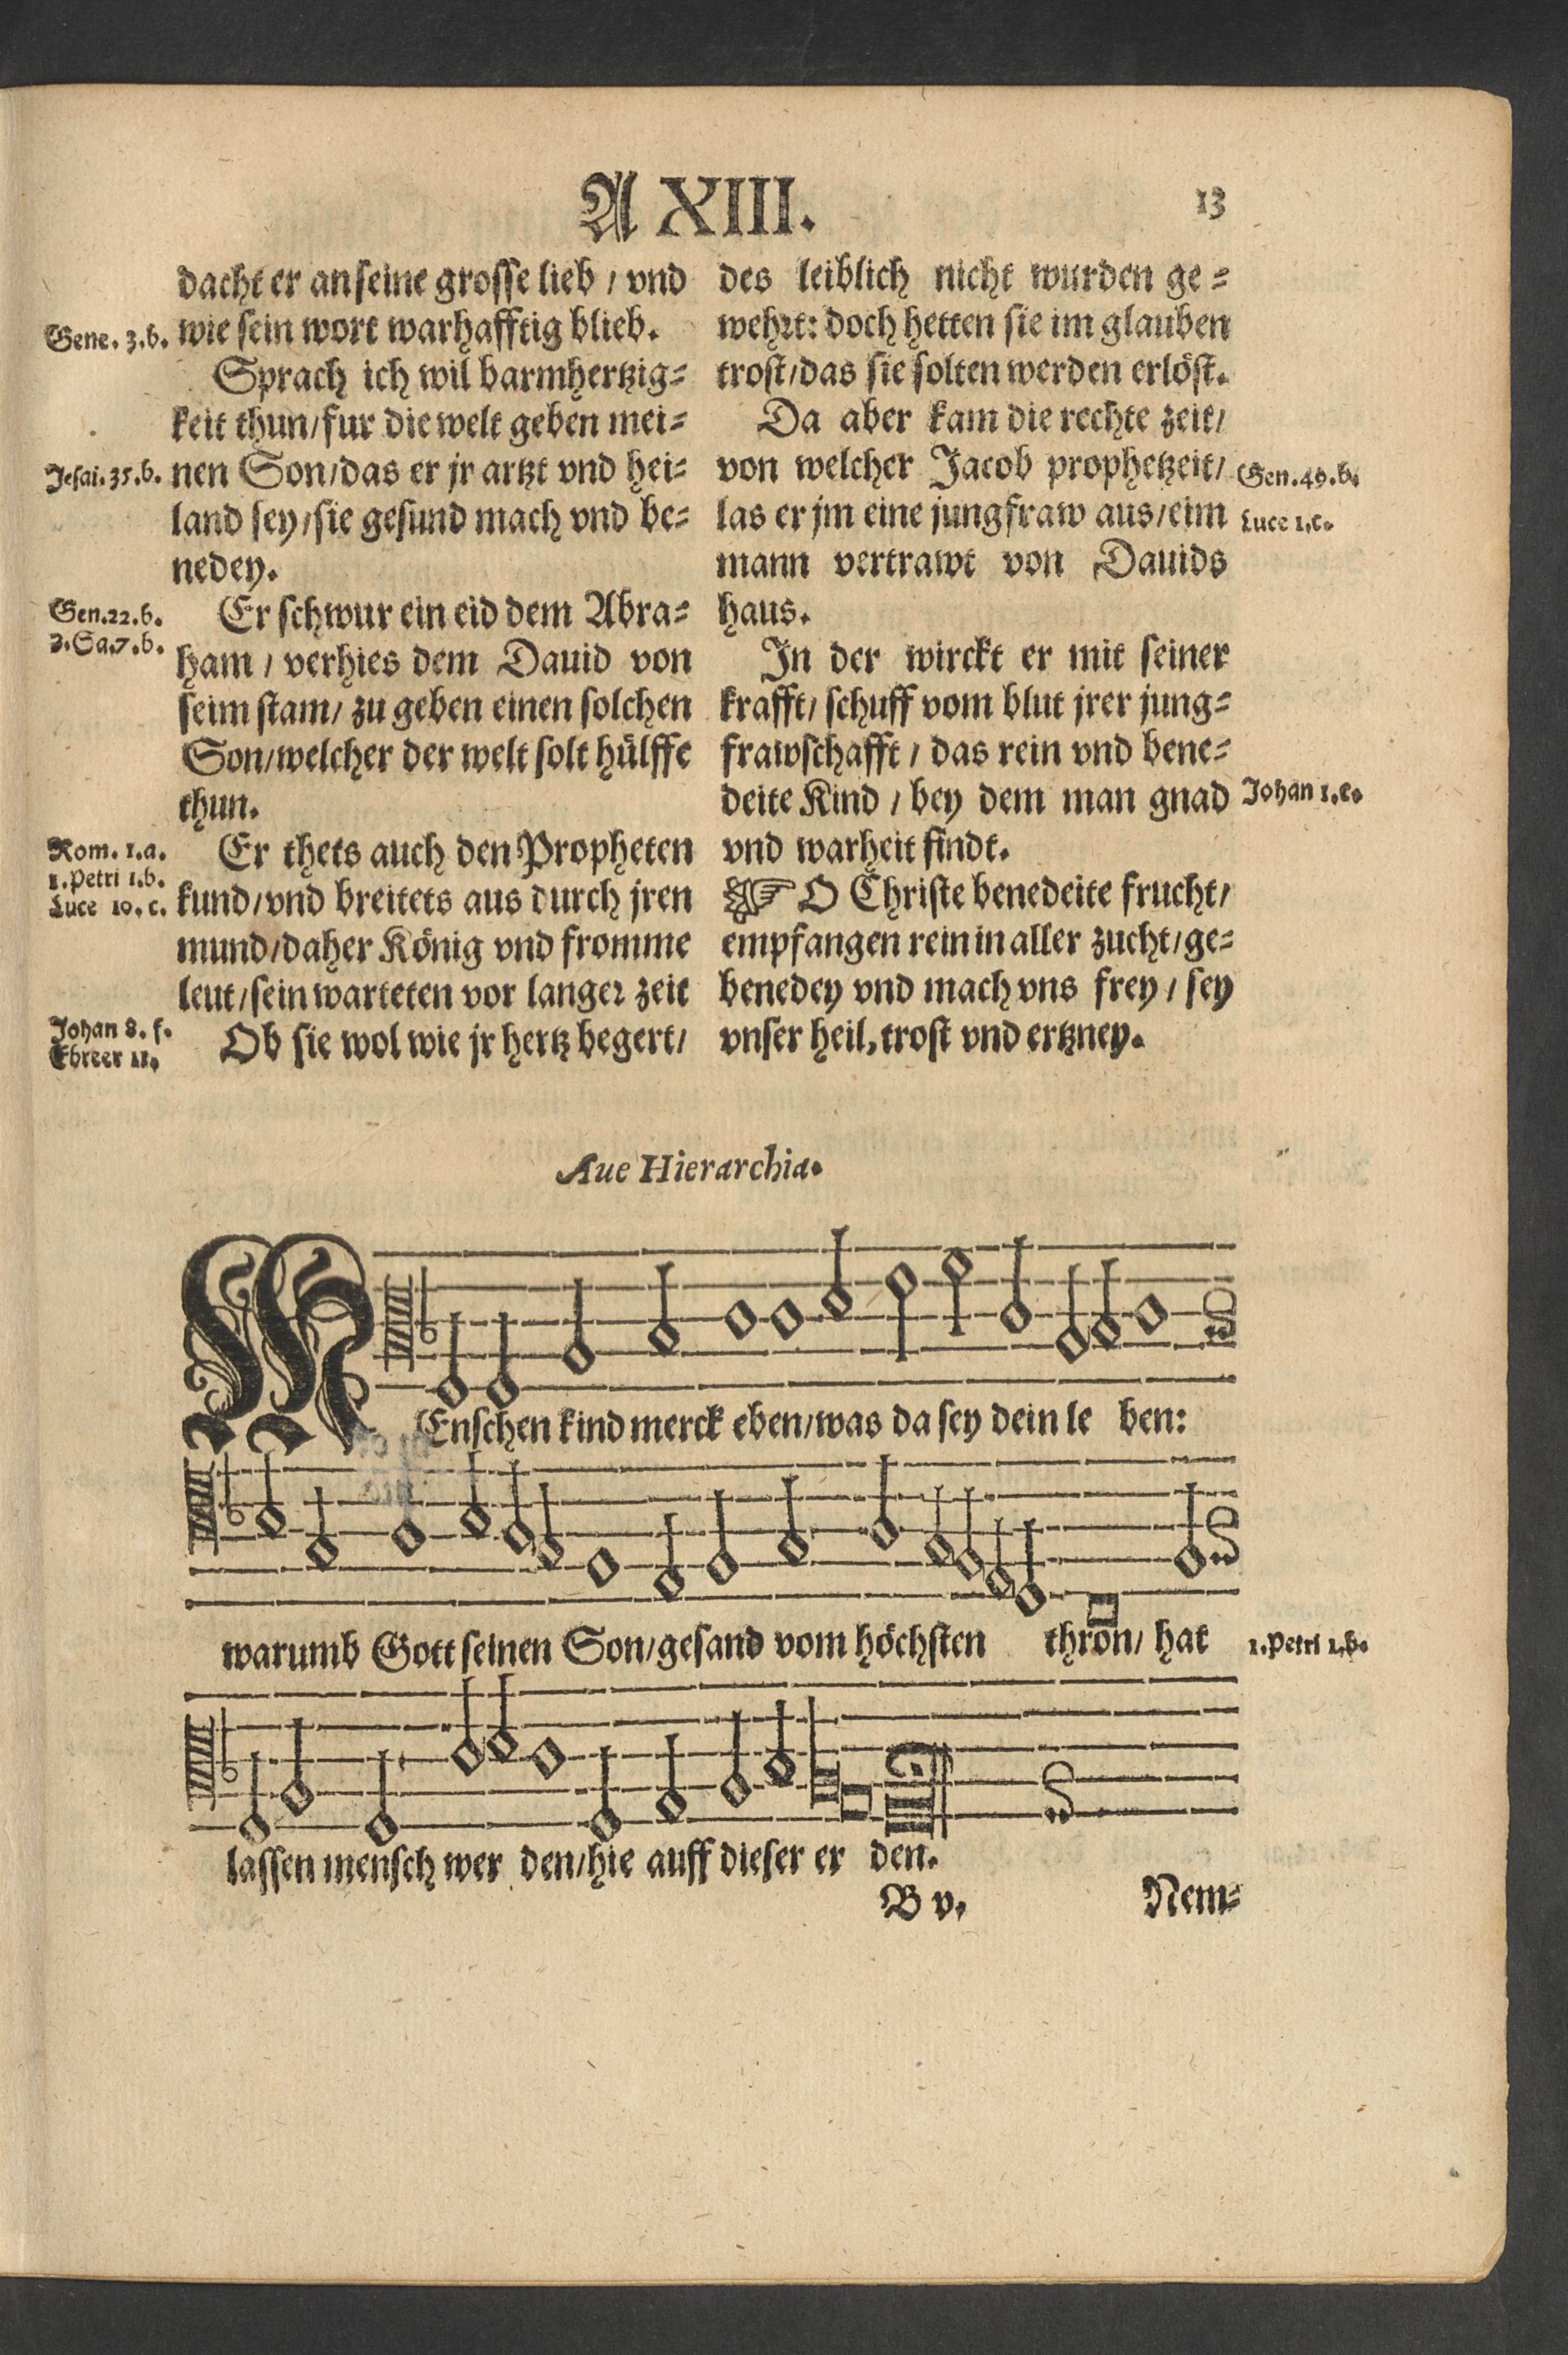 A XIII.
13
dacht er an seine grosse lieb / vnd
Gene. 3.b. wie sein wort warhafftig blieb.
Sprach ich wil barmhertzig=
keit thun / fur die welt geben mei=
Jesai. 35.b. nen Son / das er jr artzt vnd hei=
land sey / sie gesund mach vnd be=
nedey.
Gen. 22.b. Er schwur ein eid dem Abra=
2.Sa.7.b. ham / verhies dem Dauid von
seim stam / zu geben einen solchen
Son / welcher der welt solt hülffe
thun.
Rom. 1.a. Er thets auch den Propheten
1.Petri 1.b.
Luce 10.c. kund / vnd breitets aus durch jren
mund / daher König vnd fromme
leut / sein warteten vor langer zeit
Johan 8.f.
Ebreer 11. Ob sie wol wie jr hertz begert /
des leiblich nicht wurden ge=
wehrt: doch hetten sie im glauben
trost / das sie solten werden erlöst.
Da aber kam die rechte zeit /
von welcher Jacob prophetzeit / Gen. 49.b.
las er jm eine jungfraw aus / eim Luce 1.c.
mann vertrawt von Dauids
haus.
In der wirckt er mit seiner
krafft / schuff vom blut jrer jung=
frawschafft / das rein vnd bene=
deite Kind / bey dem man gnad Johan 1.c.
vnd warheit findt.
☞ O Christe benedeite frucht /
empfangen rein in aller zucht / ge=
benedey vnd mach vns frey / sey
vnser heil, trost vnd ertzney.
Aue Hierarchia.
MEnschen kind merck eben / was da sey dein le ben:
warumb Gott seinen Son / gesand vom höchsten thron / hat 1.Petri 1.b.
lassen mensch wer den / hie auff dieser er den.
B v. Nem=